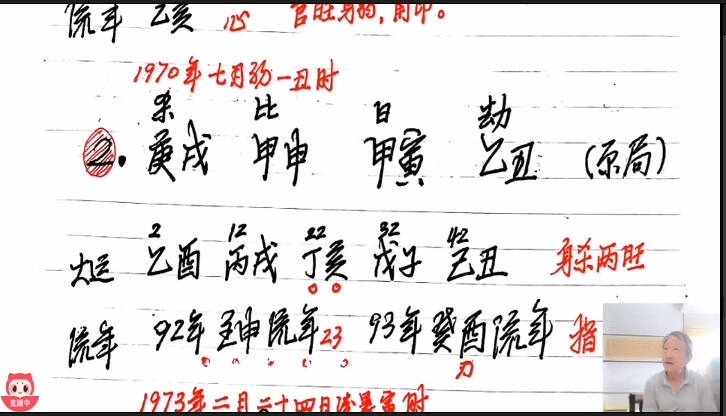 流年 乙亥 心 官旺身弱,用印。
1970年七月初一丑时
杀 比 日 劫
2. 庚戌 甲申 甲寅 乙丑 (原局)
2 12 22 32 42
大运 乙酉 丙戌 丁亥 戊子 己丑 身杀两旺
流年 92年壬申流年23 93年癸酉流年 指
刃
1973年二月二十四日 寅时
直播中